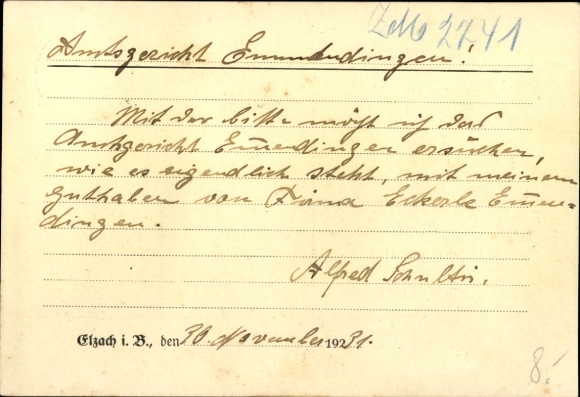 ZM 2741
Amtsgericht Emmendingen!
Mit der bitte möcht ich das
Amtsgericht Emendingen ersuchen,
wie es eigendlich steht, mit meinem
Guthaben von Eckerle Emen=
dingen.
Alfred
Elzach i. B., den 30. November 1931.
8.